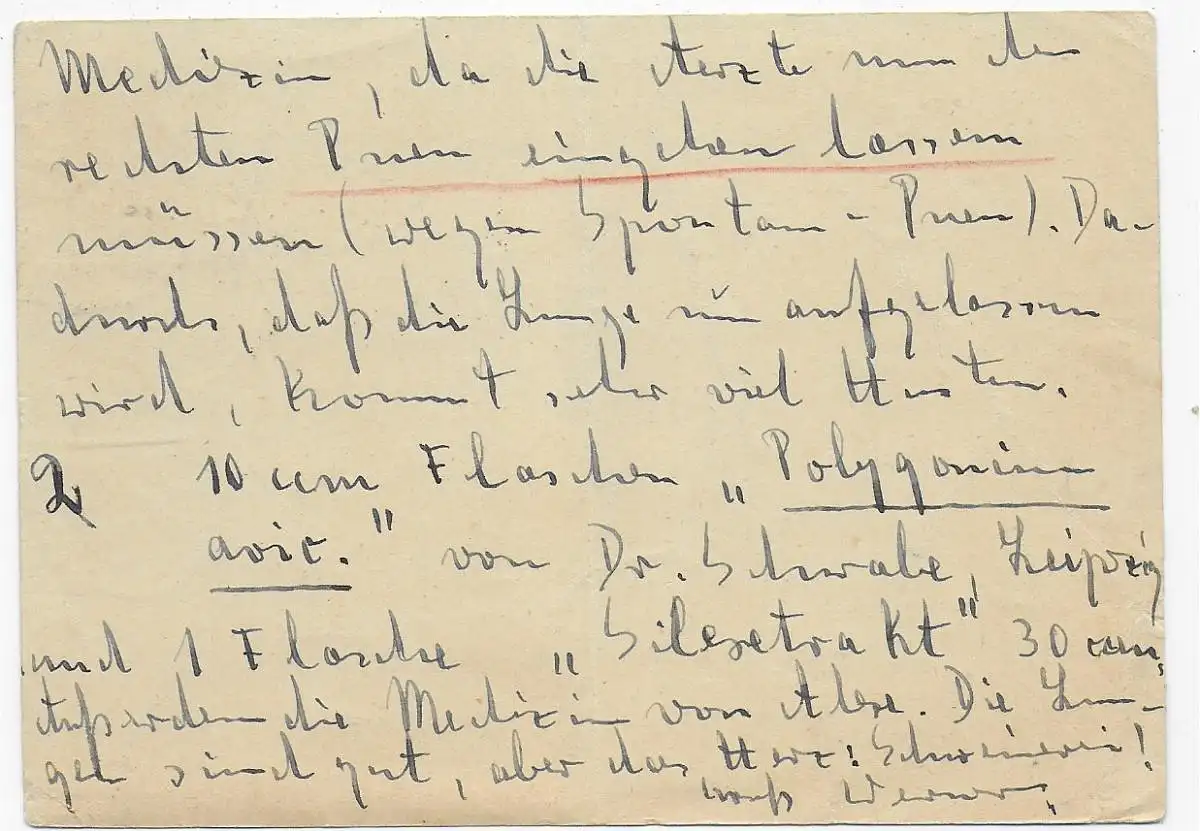 Medizin, da die Aerzte nun den
rechten Pneu eingehen lassen
müssen (wegen Spontan-Pneu). Da-
durch, daß die Lunge nun aufgelassen
wird, kommt sehr viel Husten.
2 10 ccm Flaschen „Polygonium
avic." von Dr. Schwabe, Leipzig
und 1 Flasche „Silexetrakt" 30 ccm,
Außerdem die Medizin von Alex. Die Lun-
gen sind gut, aber das Herz: Schweinerei!
Gruß Werner